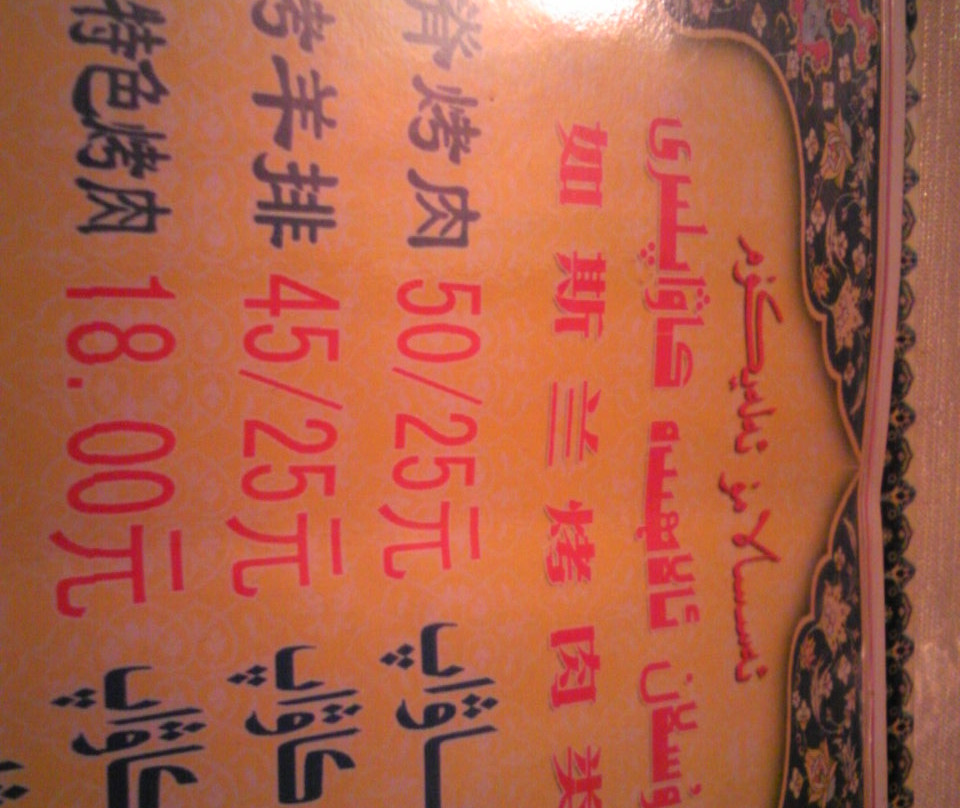 ئەسسالامۇ ئەلەيكۇم
كاۋاپلىرى
如斯兰烤肉类
脊烤肉 50/25元 كاۋاپ
烤羊排 45/25元 كاۋاپ
特色烤肉 18.00元 كاۋاپ